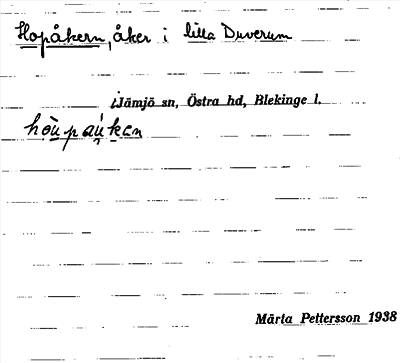 Hopåkern, åker i lilla Duverum
i Jämjö sn, Östra hd, Blekinge l.
hòu̲paúken
Märta Pettersson 1938